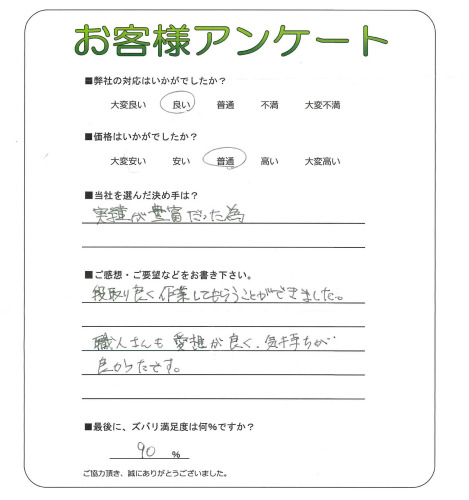 お客様アンケート
■弊社の対応はいかがでしたか？
大変良い 良い 普通 不満 大変不満
■価格はいかがでしたか？
大変安い 安い 普通 高い 大変高い
■当社を選んだ決め手は？
実積が豊富だった為
■ご感想・ご要望などをお書き下さい。
段取り良く作業してもらうことができました。
職人さんも愛想が良く、気持ちが
良かったです。
■最後に、ズバリ満足度は何％ですか？
90 ％
ご協力頂き、誠にありがとうございました。